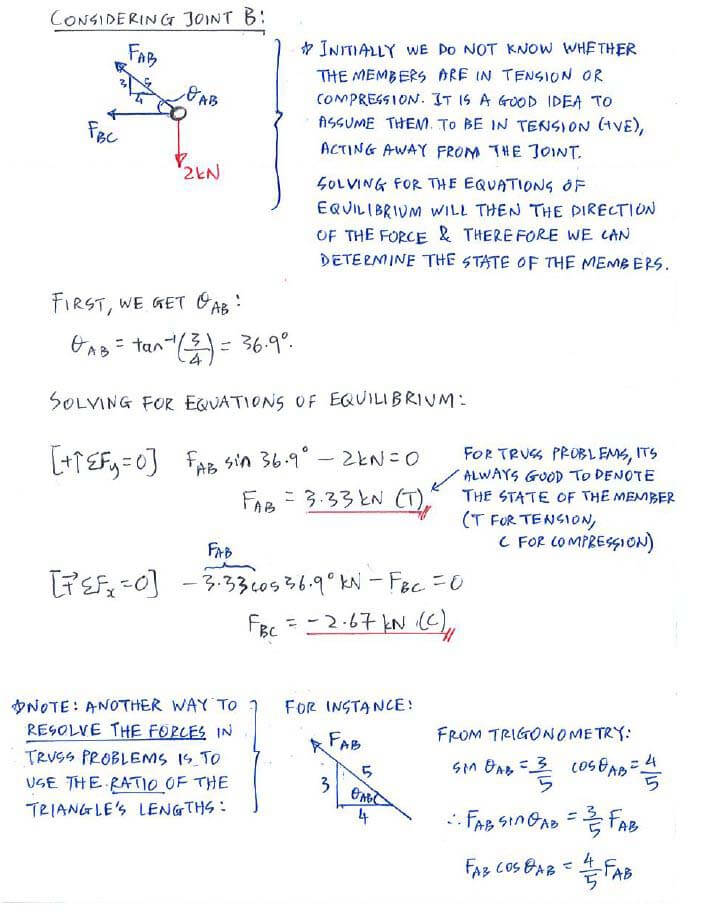 CONSIDERING JOINT B:
F_AB
3
5
4
θ_AB
F_BC
2kN
* INITIALLY WE DO NOT KNOW WHETHER
THE MEMBERS ARE IN TENSION OR
COMPRESSION. IT IS A GOOD IDEA TO
ASSUME THEM TO BE IN TENSION (+VE),
ACTING AWAY FROM THE JOINT.
SOLVING FOR THE EQUATIONS OF
EQUILIBRIUM WILL THEN THE DIRECTION
OF THE FORCE & THEREFORE WE CAN
DETERMINE THE STATE OF THE MEMBERS.
FIRST, WE GET θ_AB:
θ_AB = tan⁻¹(3/4) = 36.9°.
SOLVING FOR EQUATIONS OF EQUILIBRIUM:
[+↑ΣFy=0] F_AB sin 36.9° – 2kN = 0
F_AB = 3.33 kN (T)
FOR TRUSS PROBLEMS, ITS
ALWAYS GOOD TO DENOTE
THE STATE OF THE MEMBER
(T FOR TENSION,
C FOR COMPRESSION)
F_AB
[→+ ΣFx=0] –3.33cos36.9° kN – F_BC = 0
F_BC = –2.67 kN (C)
*NOTE: ANOTHER WAY TO
RESOLVE THE FORCES IN
TRUSS PROBLEMS IS TO
USE THE RATIO OF THE
TRIANGLE'S LENGTHS:
FOR INSTANCE:
F_AB
5
3
θ_ABC
4
FROM TRIGONOMETRY:
sin θ_AB = 3/5 cosθ_AB = 4/5
∴ F_AB sinθ_AB = 3/5 F_AB
F_AB cosθ_AB = 4/5 F_AB